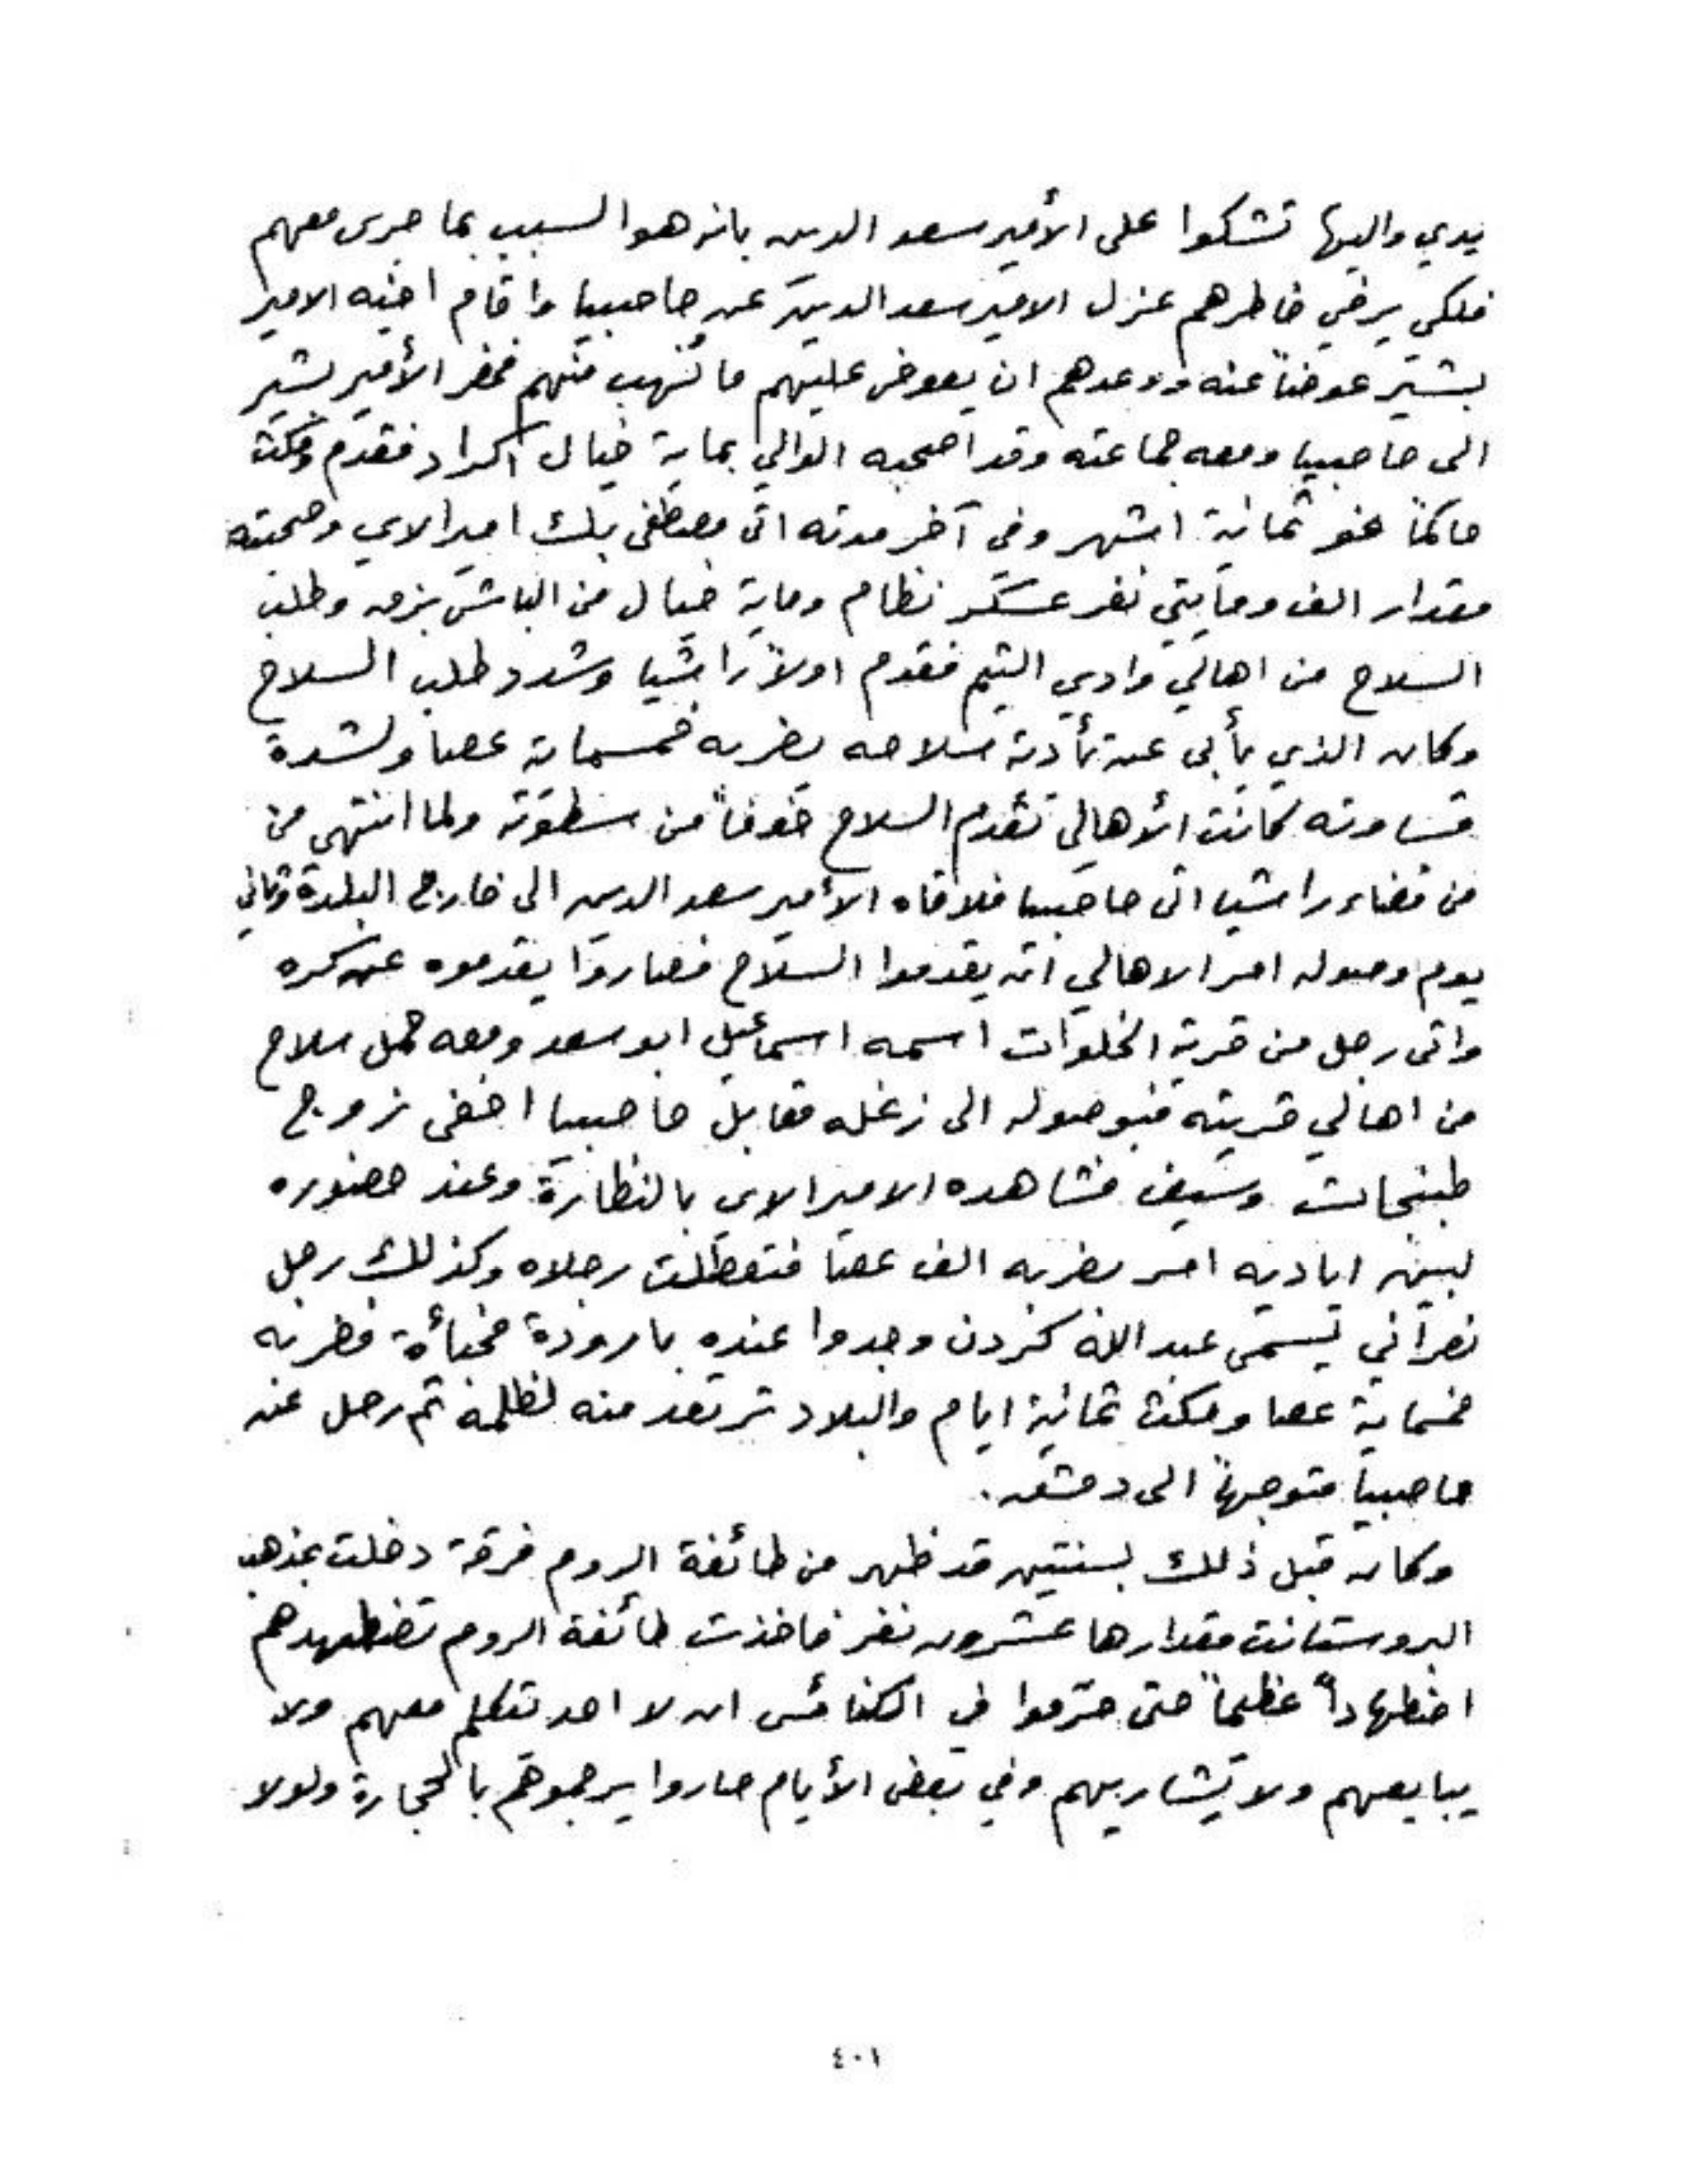 يدي واليها تشكوا على الأمير سعد الدين بانه هو السبب بما جرى معهم
فلكي يرضي خاطرهم عزل الامير سعد الدين عن حاصبيا واقام اخيه الامير
بشير عوضاً عنه ووعدهم ان يعوض عليهم ما نُهب منهم فحضر الأمير بشير
الى حاصبيا ومعه جماعته وقد اصحبه الوالي بماية خيال اكراد فتقدم ومكث
حاكماً نحو ثمانية اشهر وفي آخر مدته اتى مصطفى بك اميرالاي وصحبته
مقدار الف ومايتي نفر عسكر نظام وماية خيال من الباش بزق وطلب
السلاح من اهالي وادي التيم فقدم اولاً راشيا وشدد طلب السلاح
وكان الذي يأبى عن تأدية سلاحه يضربه خمسماية عصا ولشدة
قساوته كانت الأهالي تقدم السلاح خوفاً من سطوته ولما انتهى من
من قضاء راشيا اتى حاصبيا فلاقاه الأمير سعد الدين الى خارج البلدة وثاني
يوم وصوله امر الاهالي ان يقدموا السلاح فصاروا يقدموه عن كره
واتى رجل من قرية الخلوات اسمه اسماعيل ابو سعد ومعه حمل سلاح
من اهالي قريته فبوصوله الى زغله مقابل حاصبيا اخفى زوج
طبنجات وسيف فشاهده الاميرالاي بالنظارة وعند حضوره
لبين اياديه امر بضربه الف عصا فتعطلت رجلاه وكذلك رجل
نصراني يسمى عبدالله كزدن وجدوا عنده بارودة مخبأة فضربه
خمسماية عصا ومكث ثمانية ايام والبلاد ترتعد منه لظلمه ثم رحل عن
حاصبيا متوجهاً الى دمشق.
وكان قبل ذلك بسنتين قد ظهر من طائفة الروم فرقة دخلت بمذهب
البروستانت مقدارها عشرون نفر فاخذت طائفة الروم تضطهدهم
اضطهاداً عظيماً حتى حرّموا في الكنائس ان لا احد يتكلم معهم ولا
يبايعهم ولا يشاريهم وفي بعض الأيام صاروا يرجموهم بالحجارة ولولا
٤٠١